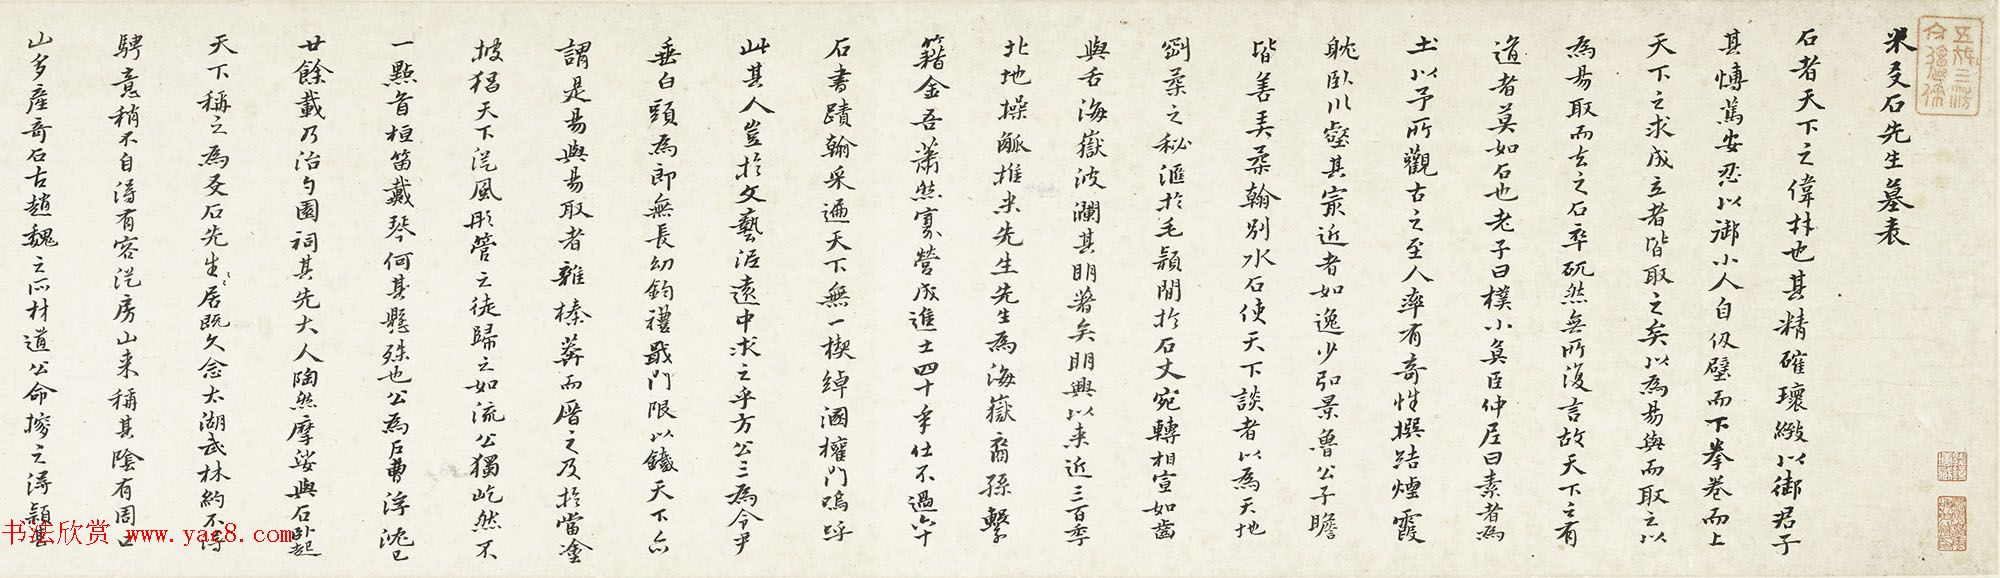 米友石先生墓表
石者天下之偉材也其精確瓌緻以御君子
其慱篤安忍以御小人自仭壁而下拳卷而上
天下之求成立者皆取之矣以為易與而取之以
為易取而去之石卒砊然無所復言故天下之有
道者莫如石也老子曰樸小莫臣仲尼曰素者為
土以予所觀古之至人率有奇性撰結煙霞
眈臥川壑其寂近者如逸少弘景魯公子瞻
皆善弄柔翰別水石使天下談者以為天地
剛柔之秘滙於毛頴間於石丈宛轉相宣如齒
與舌海嶽波瀾其明著矣明興以來近三百年
北地操觚推米先生先生為海嶽裔孫繫
籍金吾蕭然寡營成進士四十年仕不過六十
石書蹟翰采遍天下無一楔綽溷權門嗚呼
此其人豈於文藝泥遠中求之乎方公三為令尹
垂白頭為郎無長幼鈞禮戢門限以鐵天下亦
謂是易與易取者雜榛莽而厝之及於當塗
披猖天下從風彤管之徒歸之如流公獨屹然不
一點首桓笛戴琴何其懸殊也公為尸曹浮沈已
廿餘載乃治勺園祠其先大人陶然摩娑與石卧起
天下稱之為友石先生居既久念太湖武林約不得
騁意稍不自得有容從房山来稱其陰有周口
山多產奇石古趙魏之所材道公命撥之得穎
書法欣賞 www.yac8.com